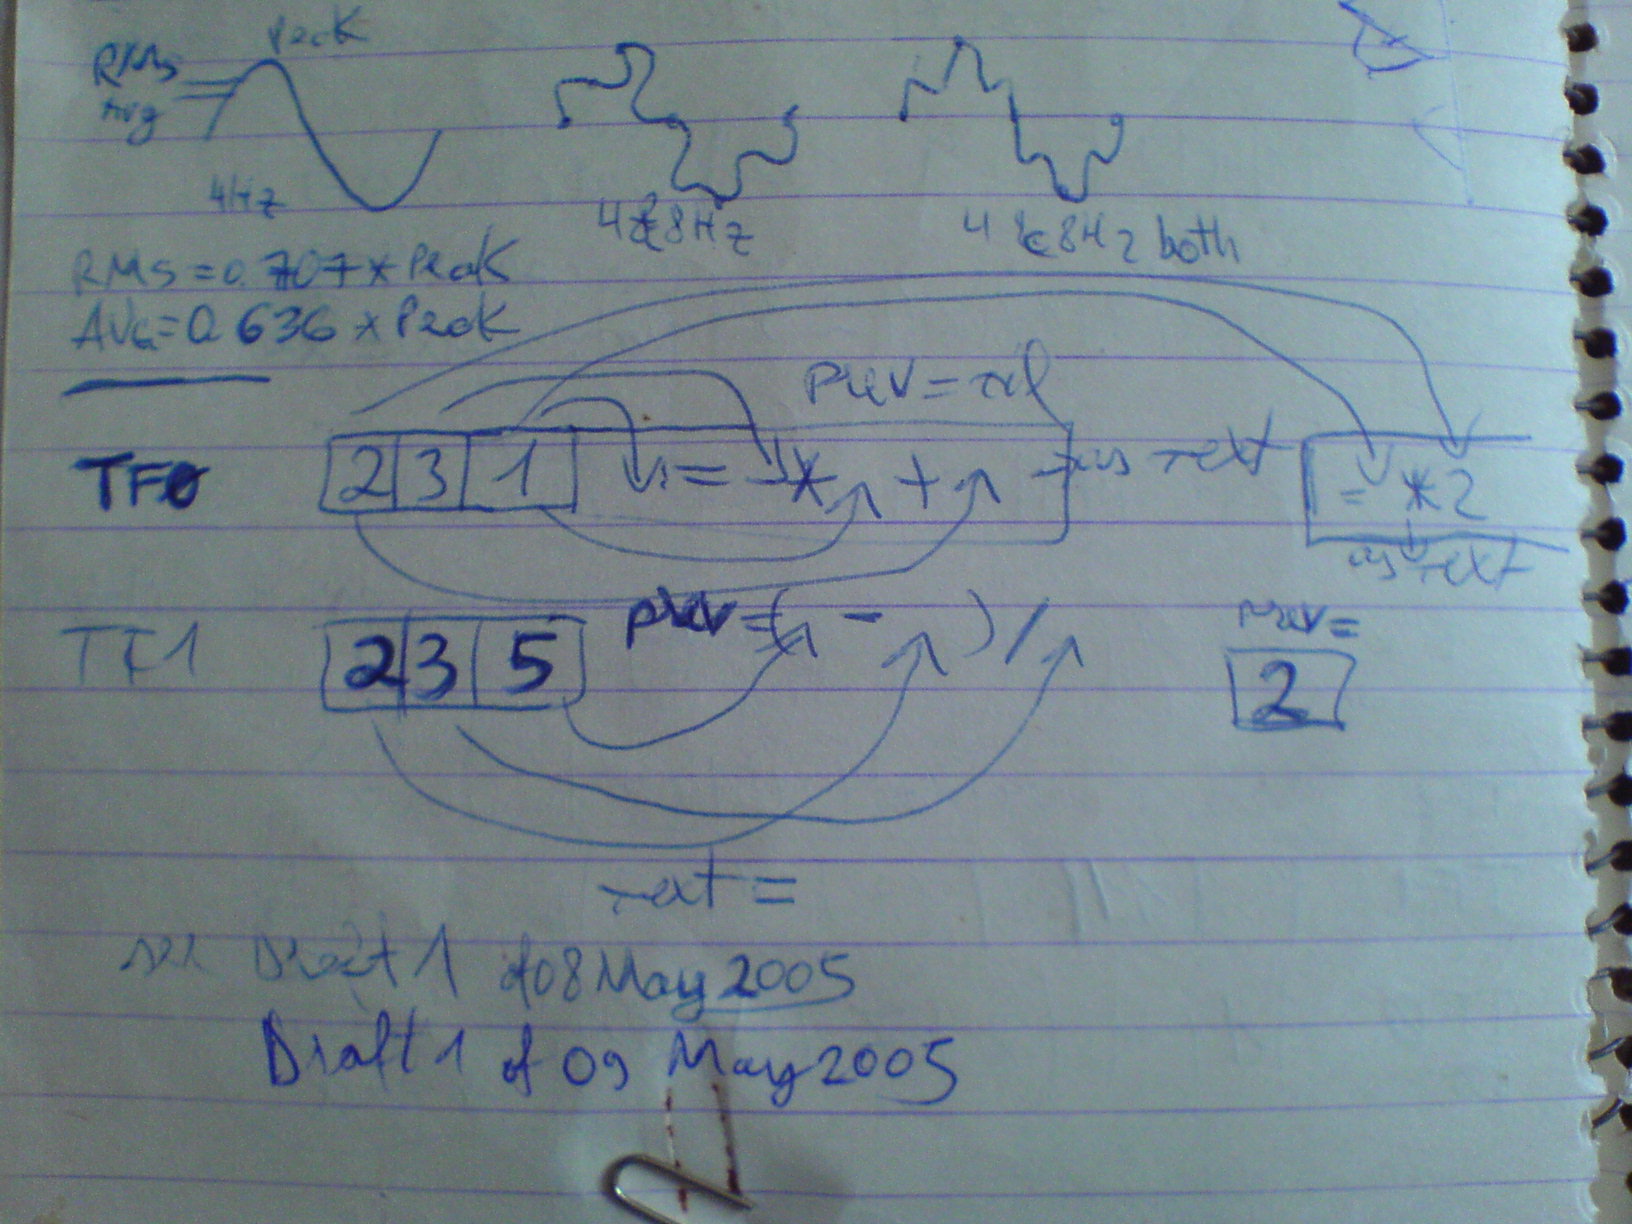 Peak
RMS
Avg
4Hz
4&8Hz
4&8Hz both
RMS=0.707*Peak
AVG=0.636*Peak
prev=
TF0 2 3 1 := * + as text = *2
as text
TF1 2 3 5 prev=( - )/ prev=
2
text =
Draft 1 of 08 May 2005
Draft 1 of 09 May 2005